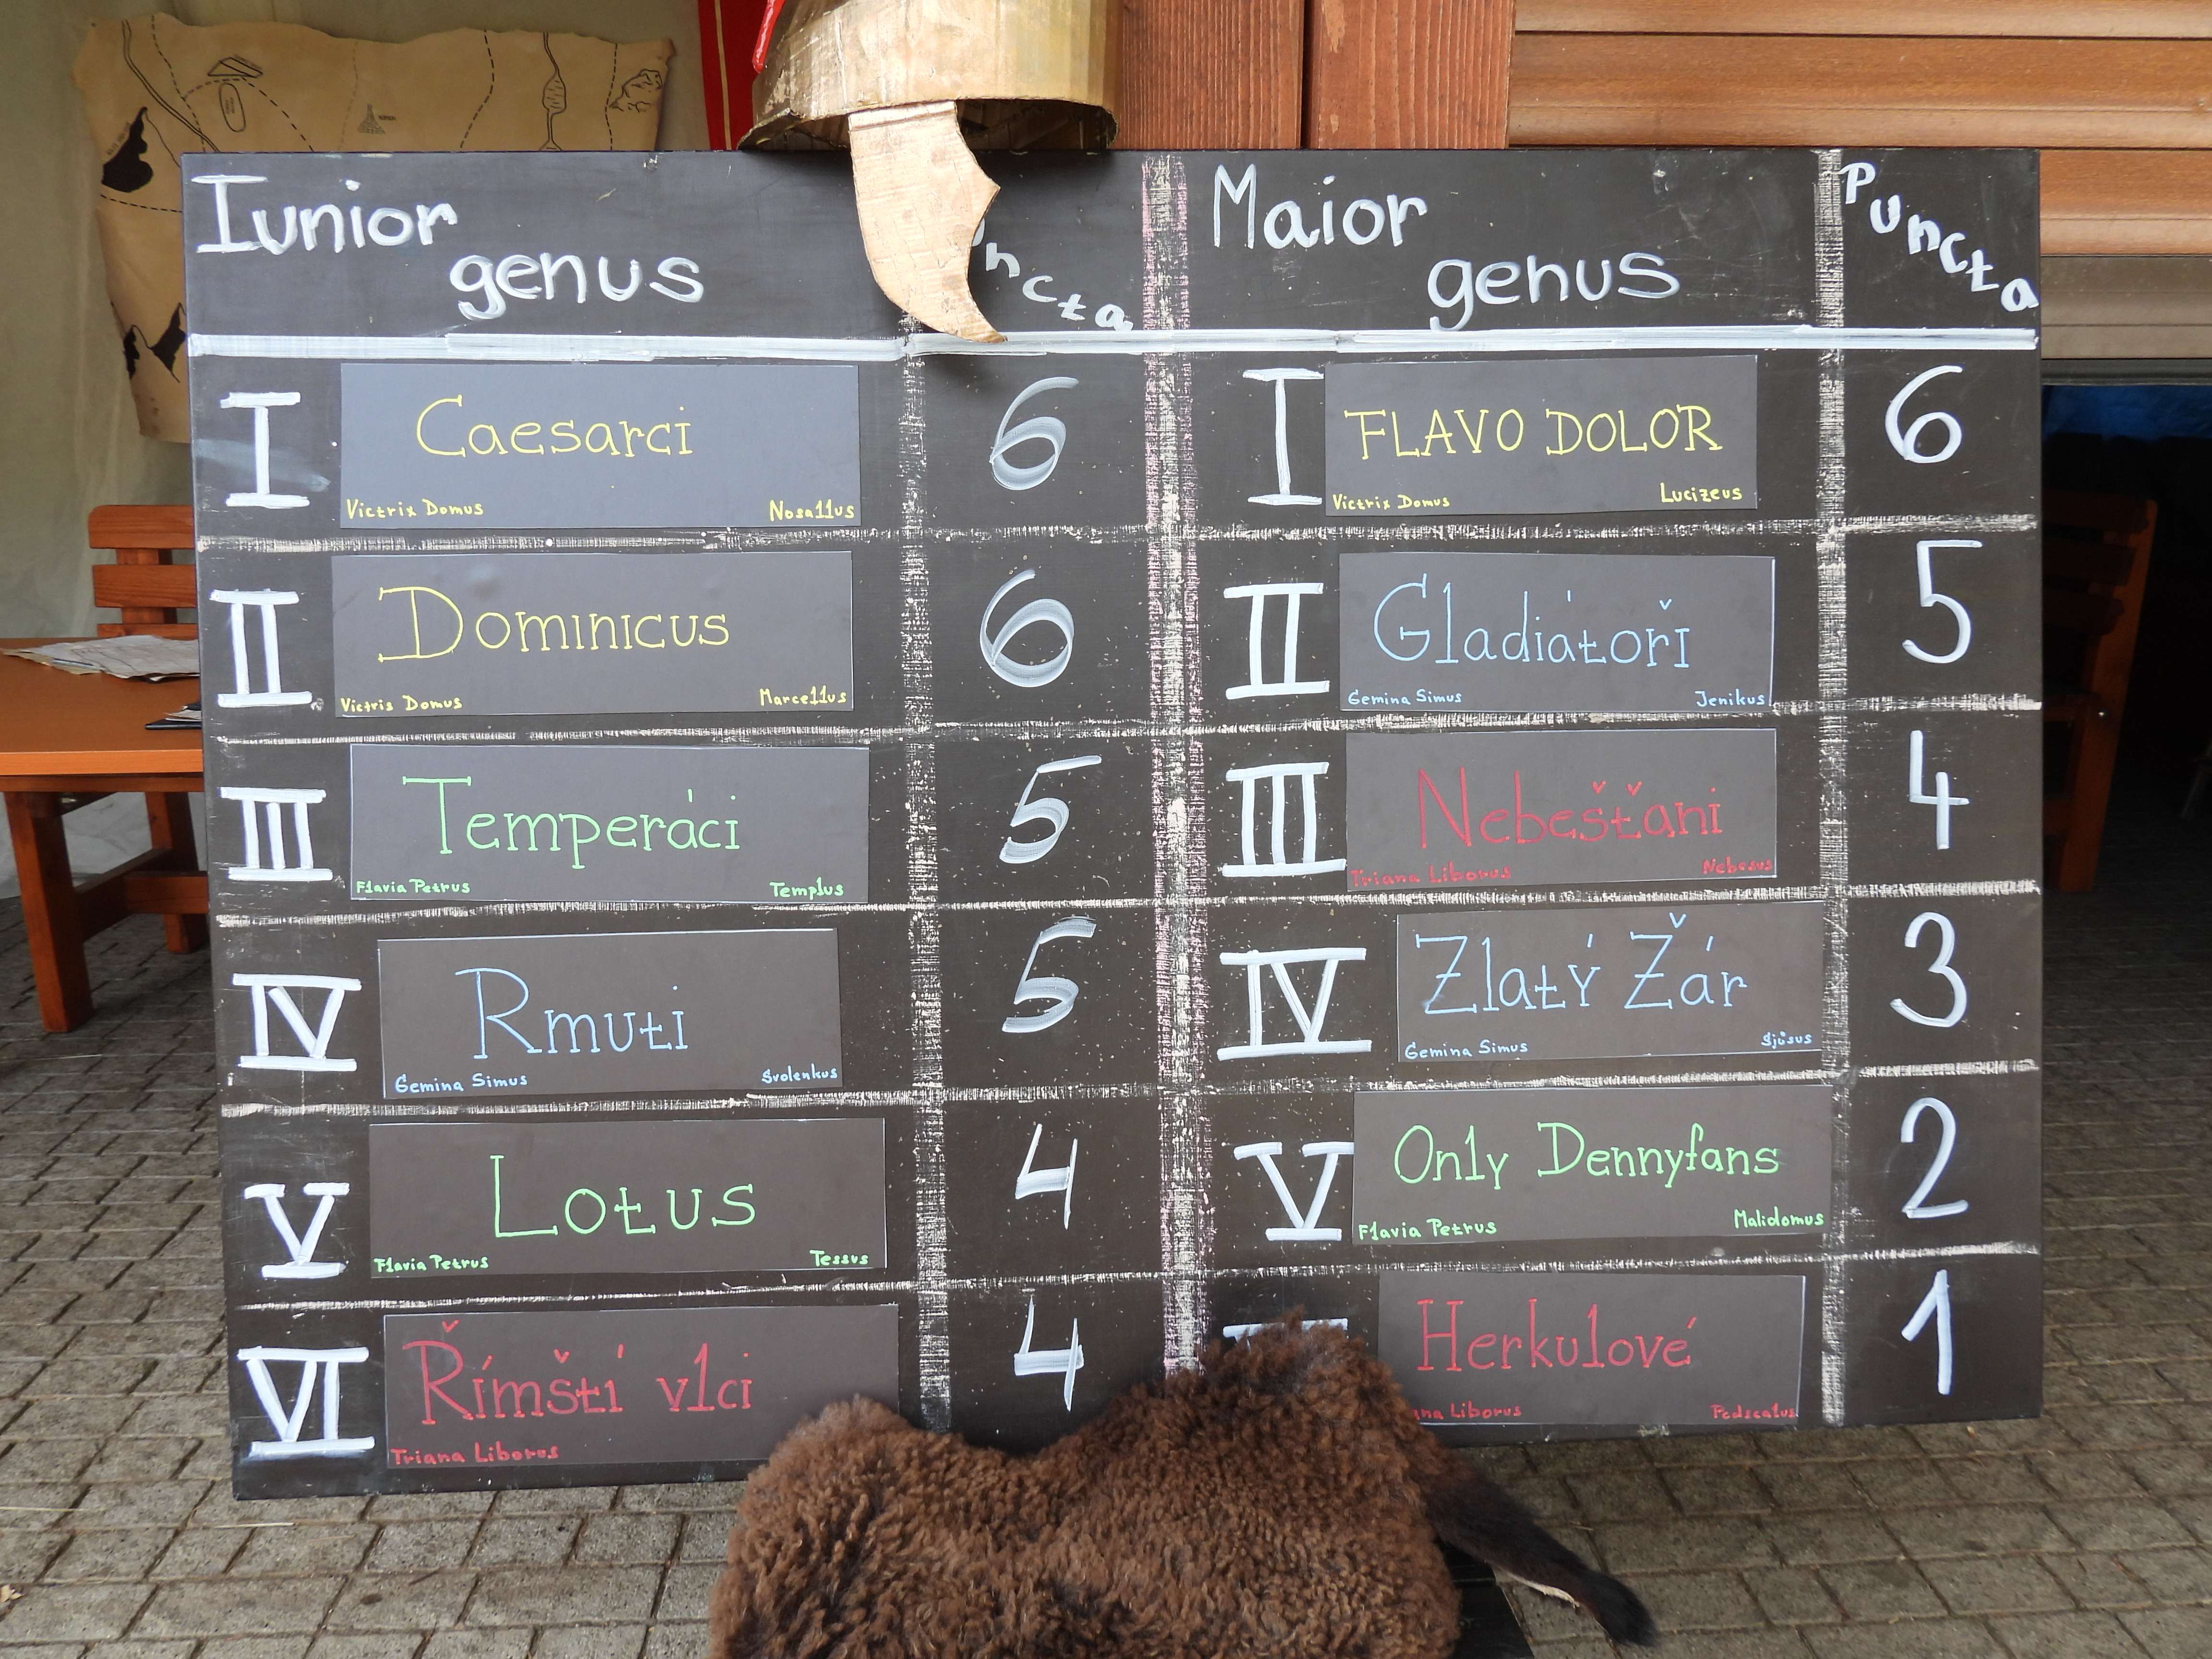 Iunior
genus
Maior
genus
Puncta
I
Caesarci
Victrix Domus
Nosallus
6
I
FLAVO DOLOR
Victrix Domus
Lucizeus
6
II
Dominicus
Victris Domus
Marcellus
6
II
Gladiátoři
Gemina Simus
Jenikus
5
III
Temperáci
Flavia Petrus
Templus
5
III
Nebešťani
Triana Liborus
Nebesus
4
IV
Rmuti
Gemina Simus
Svolenkus
5
IV
Zlatý Žár
Gemina Simus
3
V
Lotus
Flavia Petrus
Tessus
4
V
Only Dennyfans
Flavia Petrus
Malidomus
2
VI
Římští vlci
Triana Liborus
4
Herkulové
Liborus
1